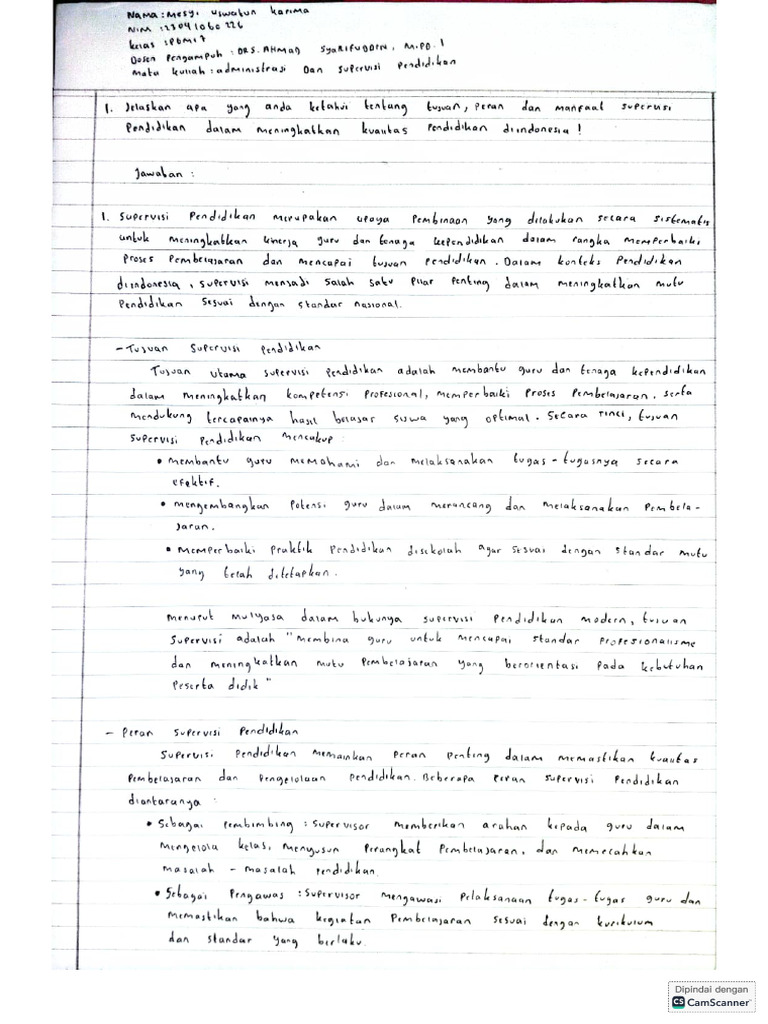 Nama : Mesyi uswatun karima
NIM : 12304106 226
kelas : PBMI 7
Dosen Pengampuh : DRS. AHMAD SyARIFUDDIN, M.PD.I
Mata kuliah : administrasi Dan Supervisi Pendidikan
1. Jelaskan apa yang anda ketahui tentang tujuan, peran dan manfaat supervisi
Pendidikan dalam meningkatkan kualitas Pendidikan diindonesia !
Jawaban :
1. Supervisi Pendidikan merupakan upaya Pembinaan yang dilakukan secara sistematis
untuk meningkatkan kinerja guru dan tenaga kependidikan dalam rangka memperbaiki
Proses Pembelajaran dan mencapai tujuan Pendidikan. Dalam konteks Pendidikan
diindonesia, supervisi menjadi salah satu pilar penting dalam meningkatkan mutu
Pendidikan sesuai dengan standar nasional.
- Tujuan Supervisi Pendidikan
Tujuan utama supervisi Pendidikan adalah membantu guru dan tenaga kependidikan
dalam meningkatkan kompetensi Profesional, memperbaiki Proses Pembelajaran. serta
mendukung tercapainya hasil belajar siswa yang optimal. Secara rinci, tujuan
supervisi Pendidikan mencakup :
• membantu guru memahami dan melaksanakan tugas-tugasnya secara
efektif.
• mengembangkan Potensi guru dalam merancang dan melaksanakan Pembela-
jaran.
• memperbaiki praktik Pendidikan disekolah agar sesuai dengan standar mutu
yang telah ditetapkan.
menurut mulyasa dalam bukunya supervisi Pendidikan modern, tujuan
supervisi adalah "membina guru untuk mencapai standar profesionalisme
dan meningkatkan mutu Pembelajaran yang berorientasi pada kebutuhan
Peserta didik"
- Peran Supervisi Pendidikan
Supervisi Pendidikan memainkan Peran Penting dalam memastikan kualitas
Pembelajaran dan Pengelolaan pendidikan. Beberapa peran supervisi Pendidikan
diantaranya :
• Sebagai pembimbing : Supervisor memberikan arahan kepada guru dalam
mengelola kelas, menyusun Perangkat Pembelajaran, dan memecahkan
masalah - masalah pendidikan.
• Sebagai Pengawas : Supervisor mengawasi Pelaksanaan tugas-tugas guru dan
memastikan bahwa kegiatan Pembelajaran sesuai dengan kurikulum
dan standar yang berlaku.
Dipindai dengan
CS CamScanner